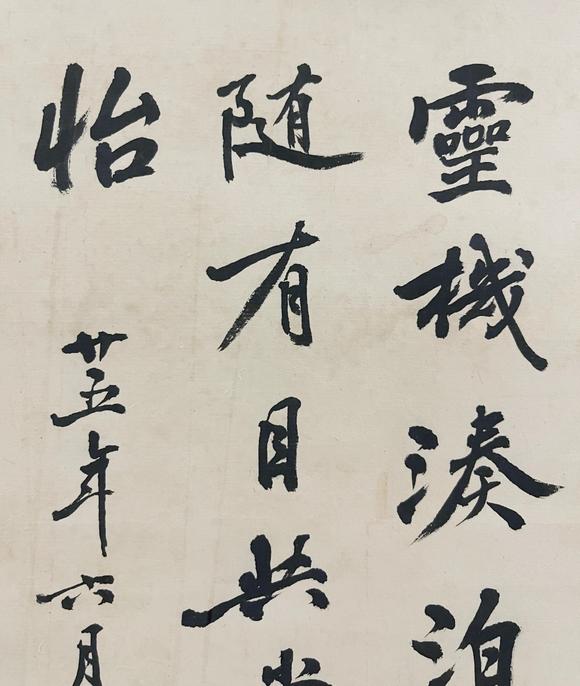 靈機湊泊
随有目共賞
怡
廿五年六月